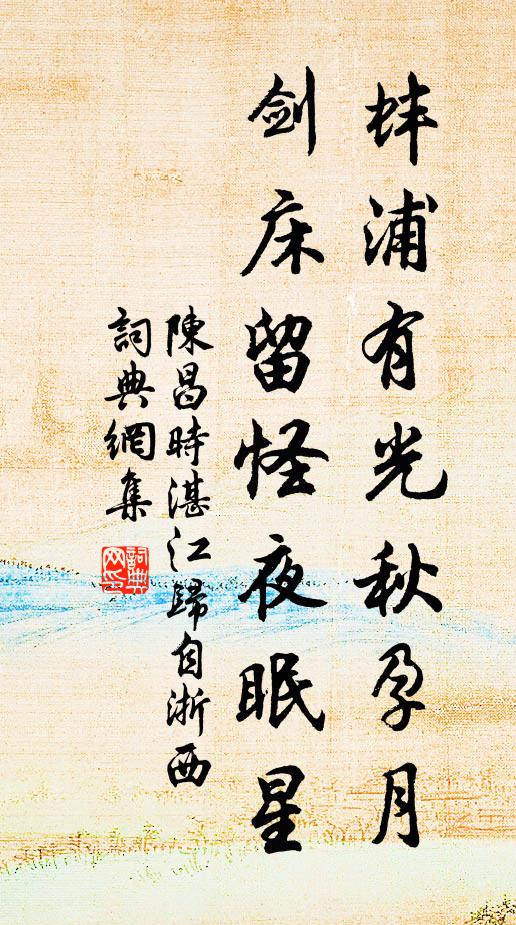 蚌浦有光秋孕月
剑床留怪夜眠星
陳昌時湛江歸自浙西
詞典網集
詞典
网印